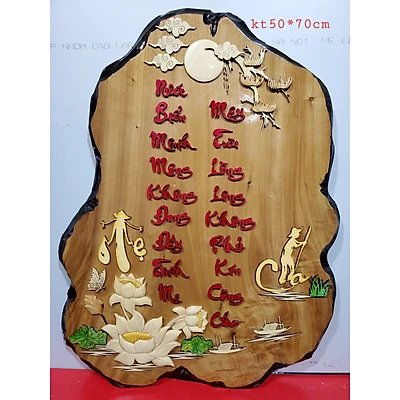 kt50*70cm
Nước
Biển
Mênh
Mông
Không
Đong
Đầy
Tình
Mẹ
Mây
Trời
Lồng
Lộng
Không
Phủ
Kín
Công
Cha
Mẹ
Cha